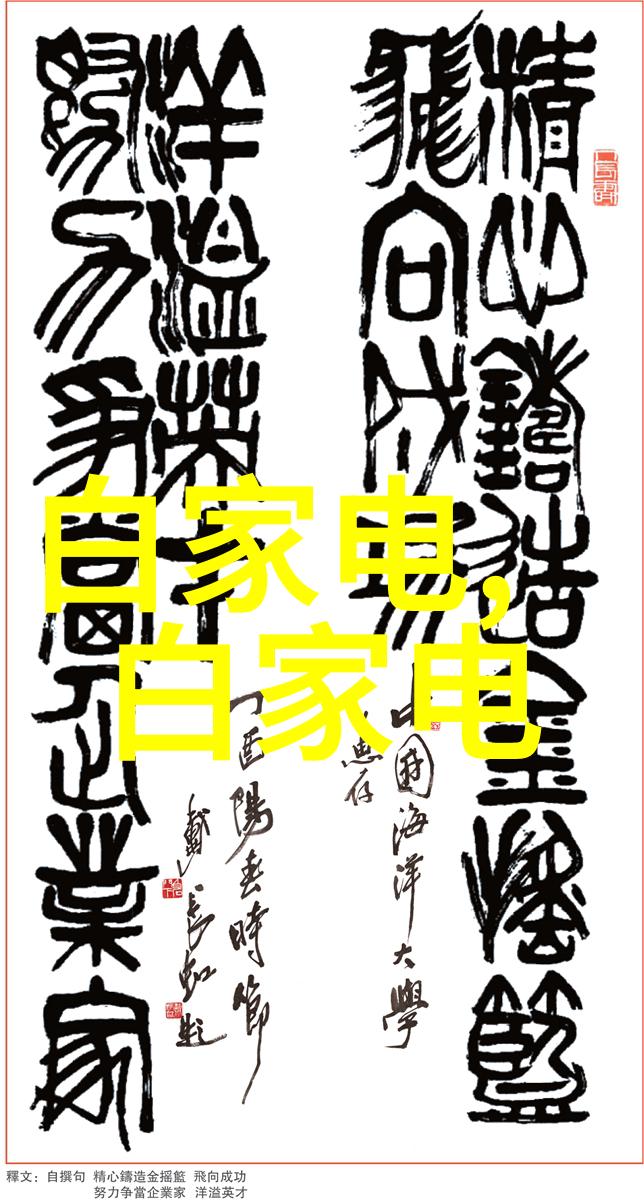 精心鑄造金摇籃
飛向成功
中國海洋大學
惠存
努力争當企業家
洋溢英才
丁酉陽春時節
戴長虹題
白家电,
白家电
釋文：自撰句 精心鑄造金摇籃 飛向成功
努力争當企業家 洋溢英才